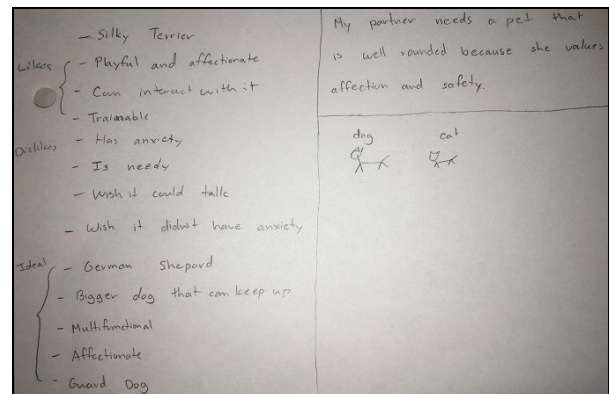 - Silky Terrier
Likes
- Playful and affectionate
- Can interact with it
- Trainable
Dislikes
- Has anxiety
- Is needy
- Wish it could talk
- Wish it didn't have anxiety
Ideal
- German Shepard
- Bigger dog that can keep up
- Multifunctional
- Affectionate
- Guard Dog
My partner needs a pet that
is well rounded because she values
affection and safety.
dog cat